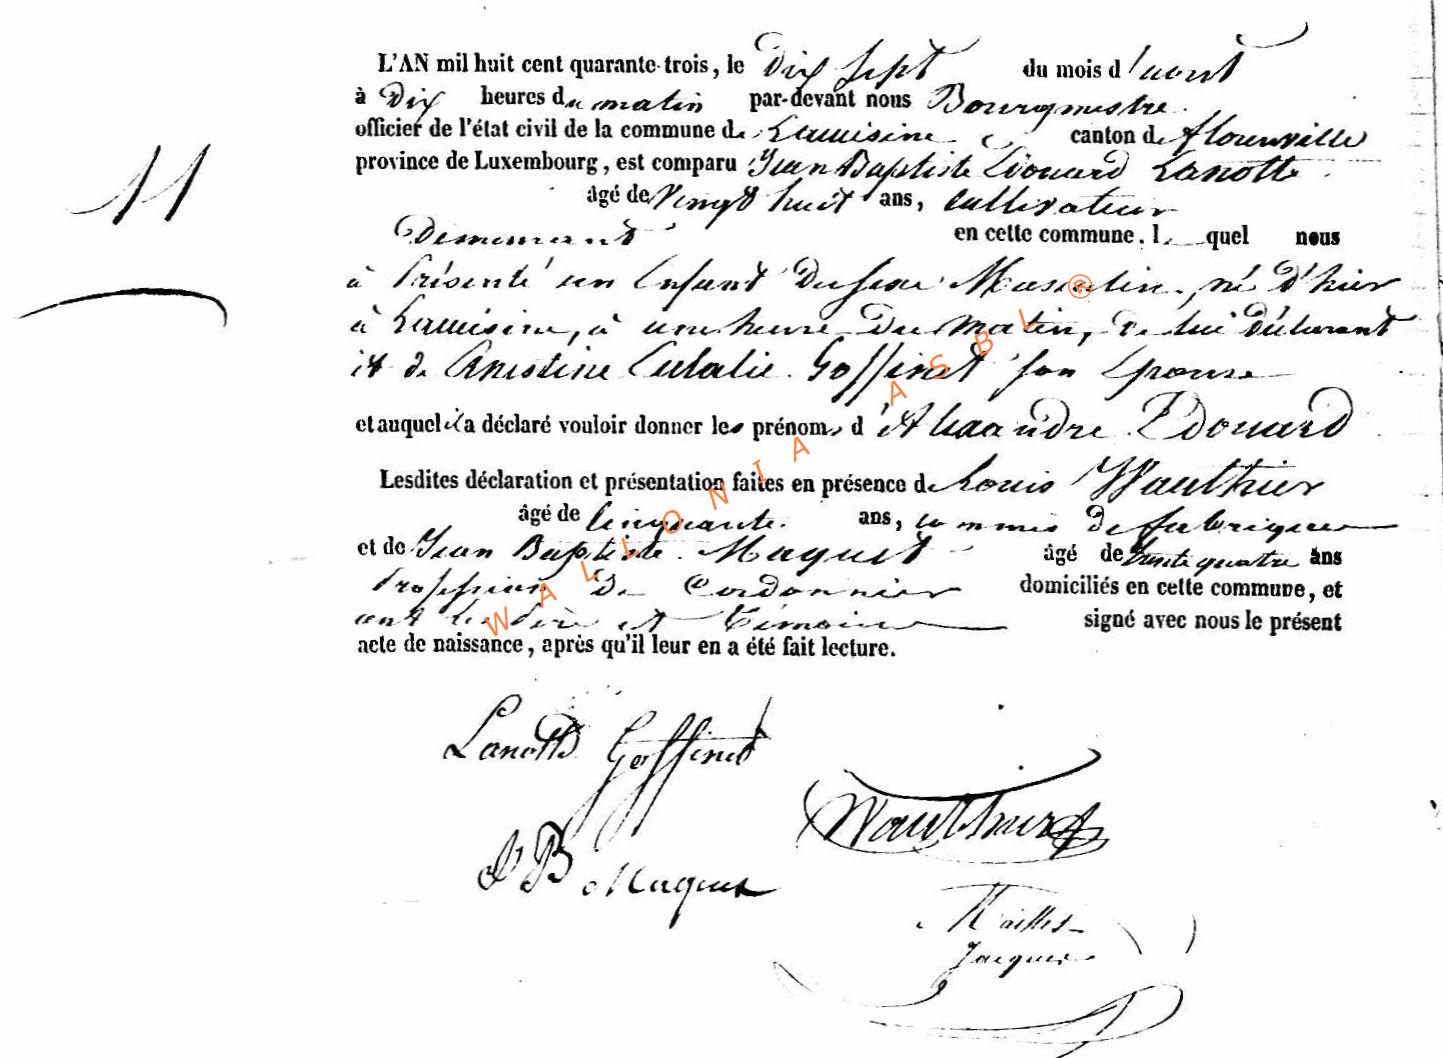 L'AN mil huit cent quarante-trois, le Dix Sept du mois d'aout
à Dix heures du matin par-devant nous Bourgmestre
officier de l'état civil de la commune de Lacuisine canton de florenville
province de Luxembourg, est comparu Jean Baptiste Edouard Lanotte
âgé de vingt huit ans, Cultivateur
Demeurant en cette commune. l quel nous
à Présenté un Enfant Du sexe Masculin, né d'hier
à Lacuisine, à une heure Du Matin, De lui Déclarant
et de Ernestine Eulalie Goffinet son Epouse
et auquel il a déclaré vouloir donner les prénoms d'Alexandre Edouard
Lesdites déclaration et présentation faites en présence de Louis Wauthier
âgé de Cinquante ans, commis De fabrique
et de Jean Baptiste Maquet âgé de trente quatre ans
Profession De Cordonnier domiciliés en cette commune, et
ont les Père et Témoins signé avec nous le présent
acte de naissance, après qu'il leur en a été fait lecture.
11
WALLONIA ASBL ®
Lanotte Goffinet
Wauthier
J B Maquet
Jacques